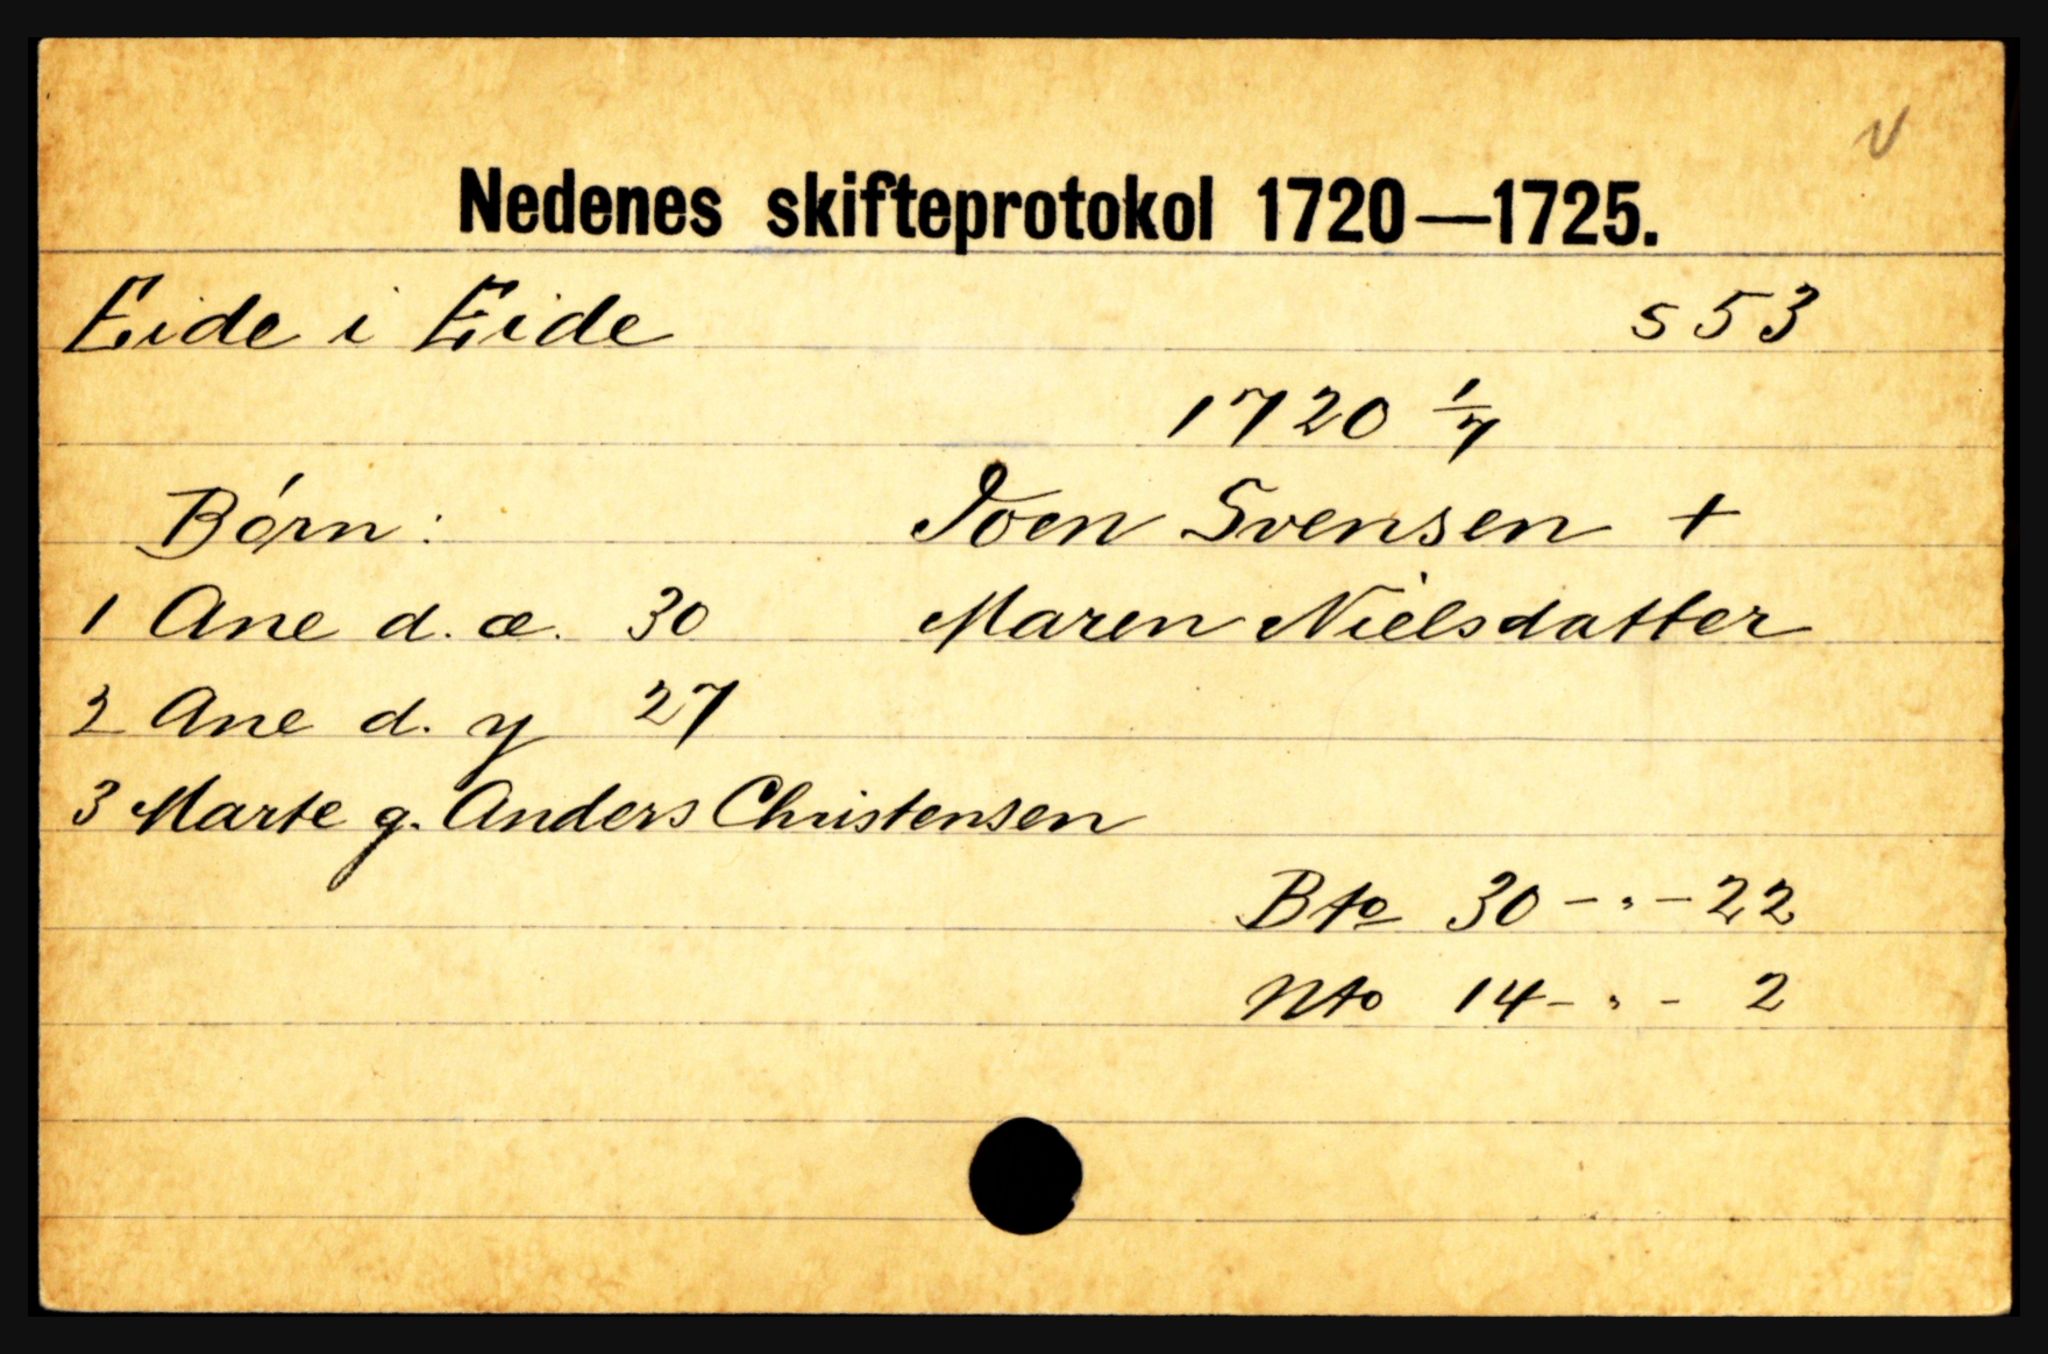 N
Nedenes skifteprotokol 1720—1725.
Eide i Eide s 53
1720 1/7
Børn: Joen Svensen +
1 Ane d. æ. 30 Maren Nielsdatter
2 Ane d. y 27
3 Marte g. Anders Christensen
Bto 30 - " - 22
Nto 14 - " - 2